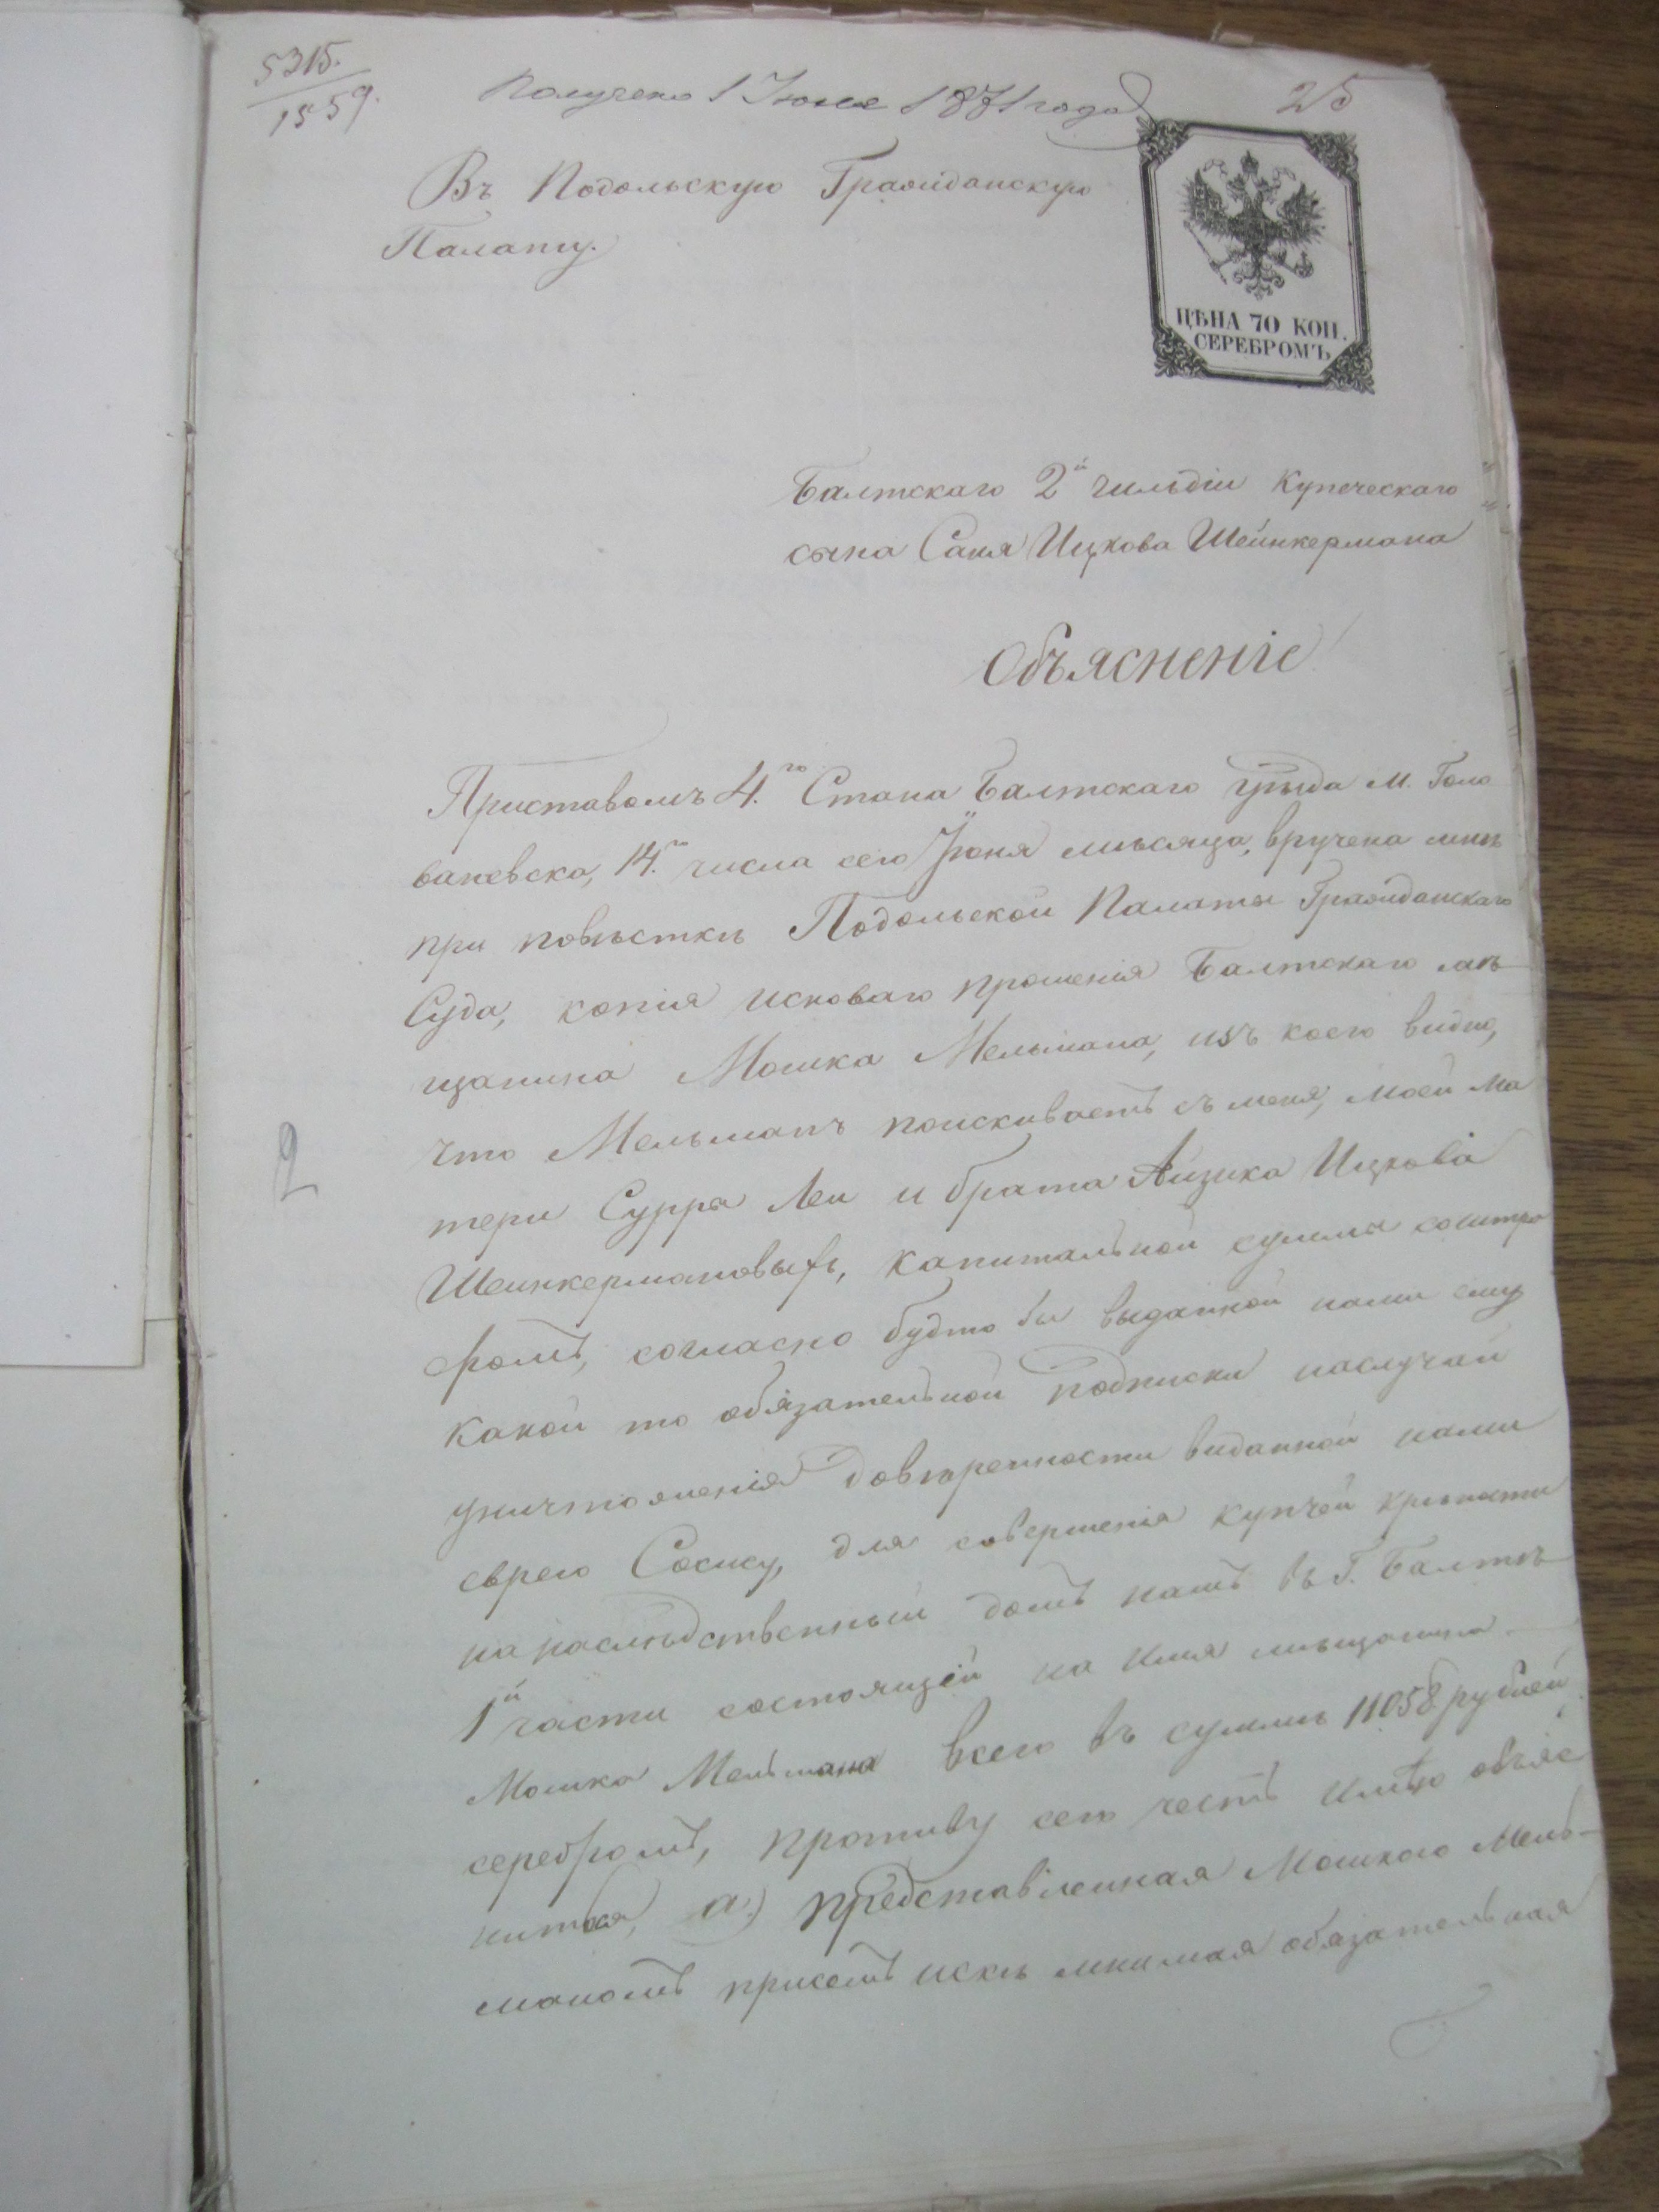 5315.
1559.
Получено 1 Июня 1871 года
25
Въ Подольскую Гражданскую
Палату.
ЦѢНА 70 КОП.
СЕРЕБРОМЪ
Балтскаго 2й гильдіи Купеческаго
сына Саня Ицкова Шейнкермана
Объясненіе
Приставомъ 4.го Стана Балтскаго уѣзда м. Голо
ваневска, 14.го числа сего Іюня мѣсяца, вручена мнѣ
при повѣсткѣ Подольской Палаты Гражданскаго
Суда, копія исковаго прошенія Балтскаго мѣ
щанина Мошка Мельмана, изъ коего видно,
что Мельманъ поискиваетъ съ меня, моей ма
тери Сурры Леи и брата Айзика Ицкова
Шейнкермановыхъ, капитальной суммы соштра
фомъ, согласно будто бы выданной нами ему
какой то обязательной подписки наслучай
уничтоженія довѣренности виданной нами
еврею Сокису, для совершенія купчей крѣпости
на наслѣдственный домъ нашъ въ Г. Балтѣ
1й части состоящей на имя мѣщанина
Мошка Мельмана всего въ суммѣ 11058 рублей
серебромъ, противу сего честь имѣю объяс
нитьса, а.) представленная Мошкою Мель-
маномъ присемъ искѣ мнимая обязательная
2